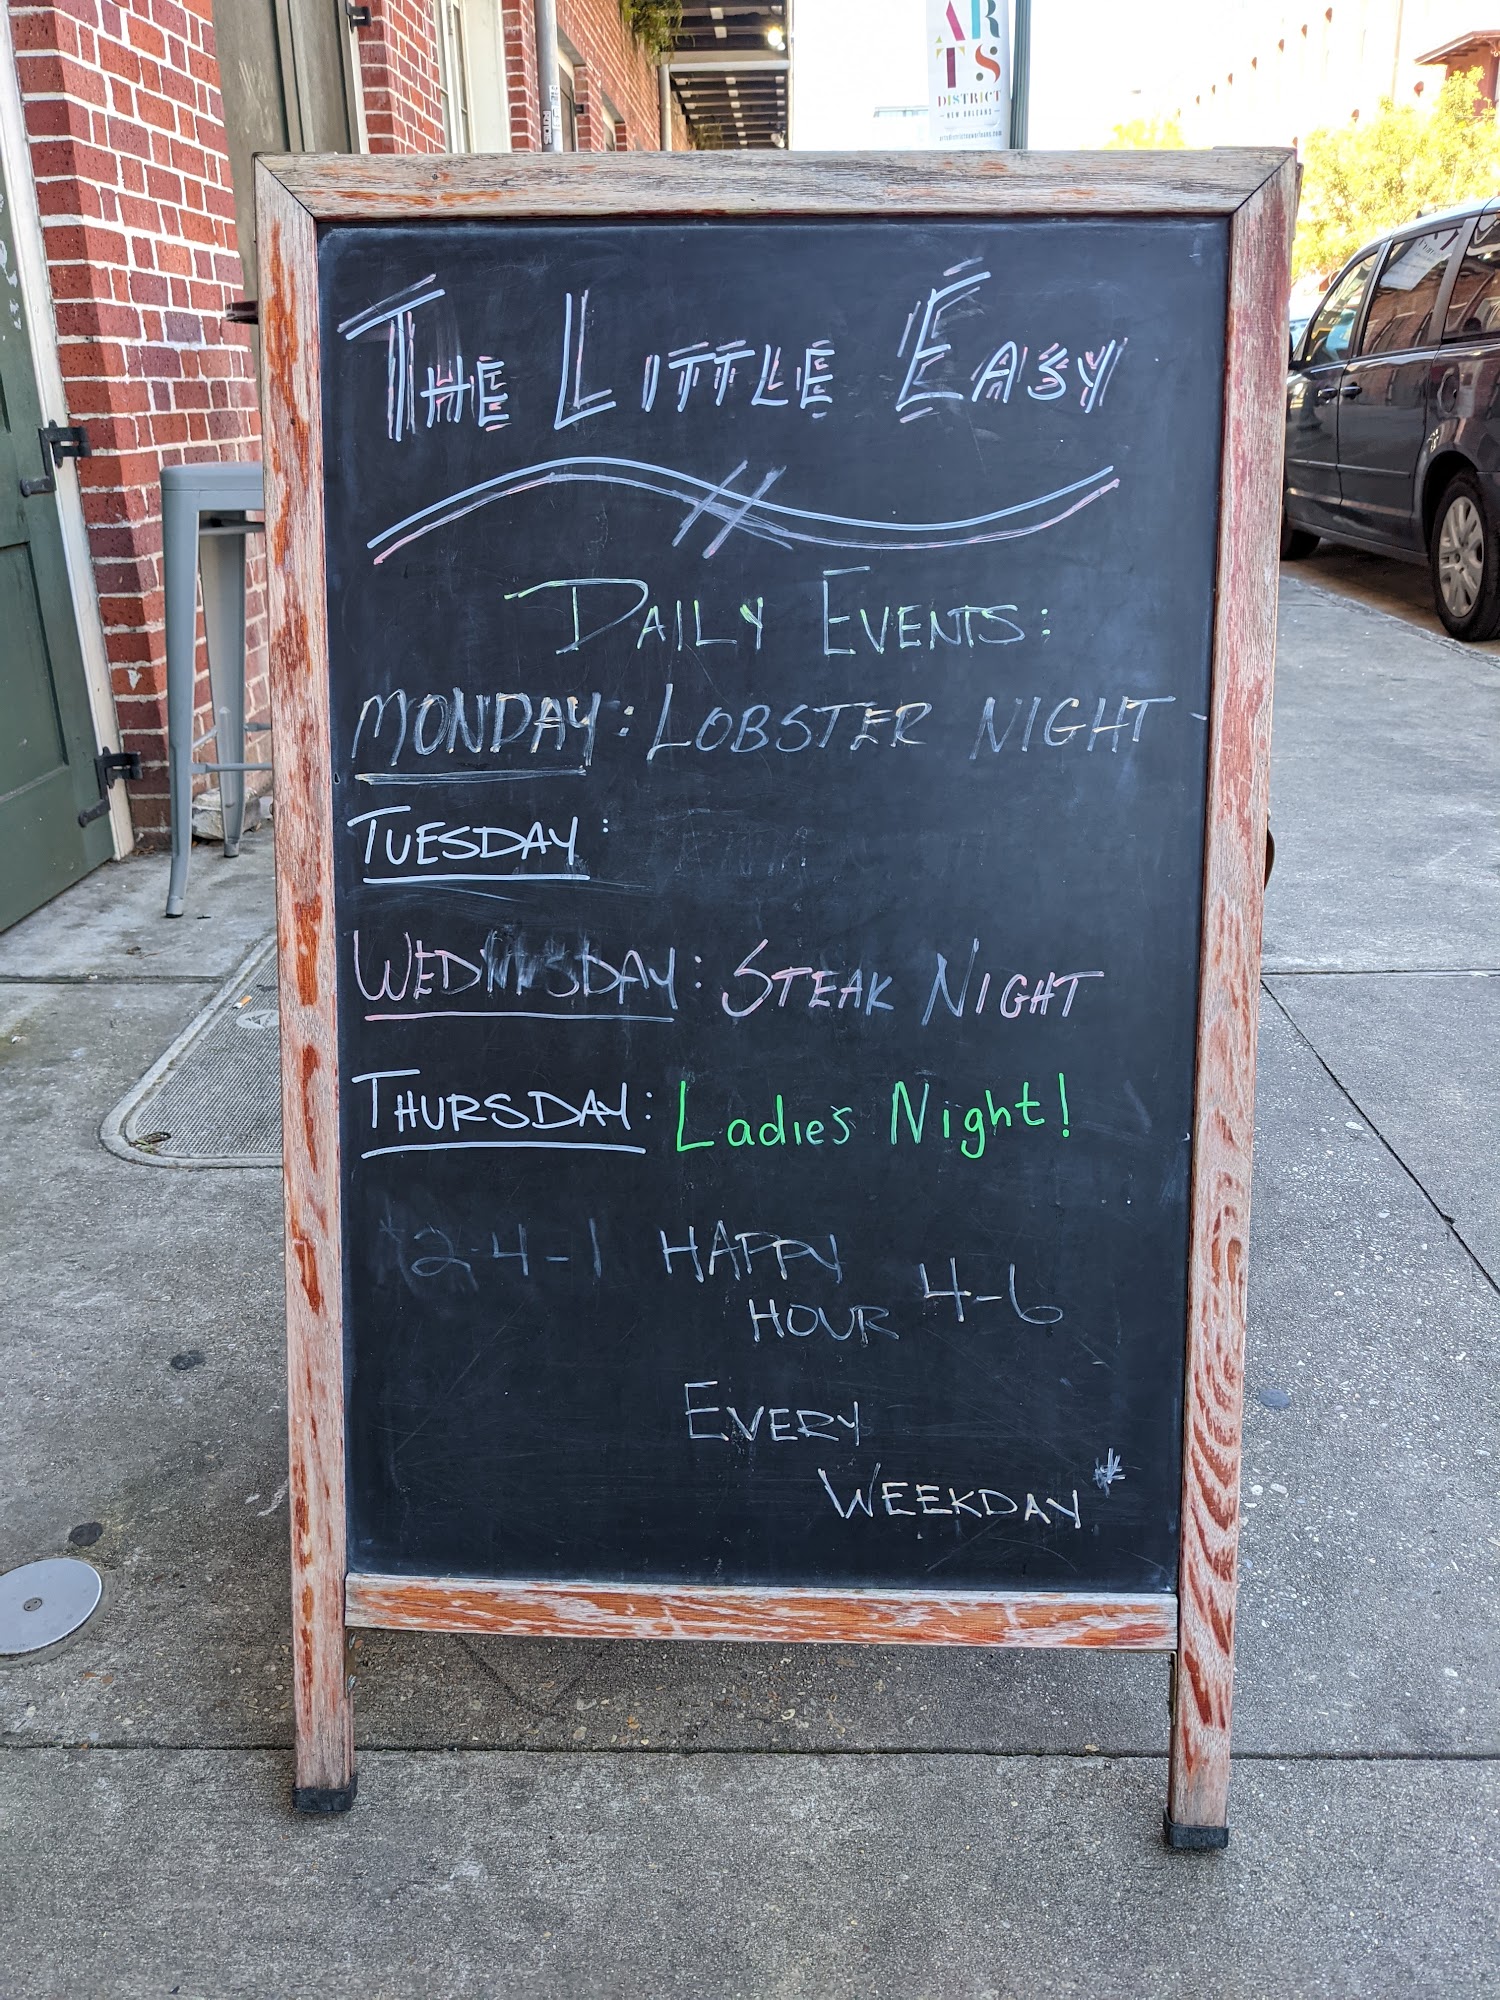 ARTS
DISTRICT
NEW ORLEANS
THE LITTLE EASY
DAILY EVENTS:
MONDAY: LOBSTER NIGHT
TUESDAY:
WEDNESDAY: STEAK NIGHT
THURSDAY: Ladies Night!
*2-4-1 HAPPY HOUR 4-6
EVERY
WEEKDAY*